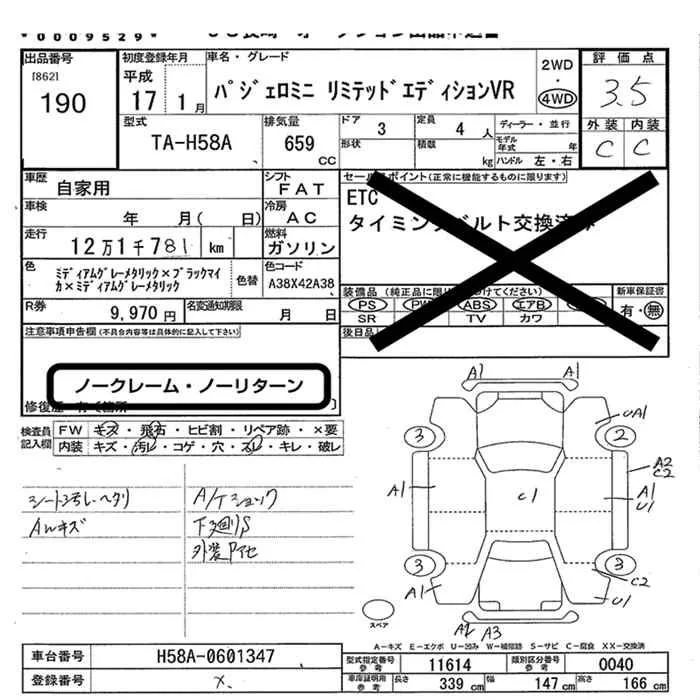 *0009529*
出品番号
[862]
190
初度登録年月
平成
17 1月
車名・グレード
パジェロミニ リミテッドエディションVR
2WD
・
4WD
評価点
3.5
外装 内装
C C
型式
TA-H58A
排気量
659
CC
ドア 3
定員 4 人
ディーラー・並行
形状
積載 kg
モデル年式 年
ハンドル 左・右
車歴
自家用
シフト
FAT
セールスポイント(正常に機能するものに限ります)
ETC
タイミングベルト交換済み
車検
年 月( 日)
冷房
AC
走行
12万1千781 km
燃料
ガソリン
色
ミディアムグレーメタリック×ブラックマイ
カ×ミディアムグレーメタリック
色替
色コード
A38X42A38
装備品(純正品に限り
けてください)
新車保証書
PS PW ABS エアB
有・無
SR TV カワ
R券
9,970円
名変通知期限
月 日
後日品
注意事項申告欄(不具合内容等は具体的に記入して下さい)
ノークレーム・ノーリターン
修復歴
検査員
記入欄
FW キズ・飛石・ヒビ割・リペア跡・×要
内装 キズ・汚レ・コゲ・穴・スレ・キレ・破レ
シートヨゴレ・ヘタリ
A/Tショック
AWキズ
下廻りS
A1 A1
UA1
3 2
A2
C2
A1 C1 A1
U1
3 3
A1 C2
U1
A2 A3
スペア
A-キズ E-エクボ U-凹み W-補修跡 S-サビ C-腐食 XX-交換済
車台番号
H58A-0601347
型式指定番号
参考
11614
類別区分番号
参考
0040
登録番号
×
車庫証明用
参考
長さ 339 cm
幅 147 cm
高さ 166 cm